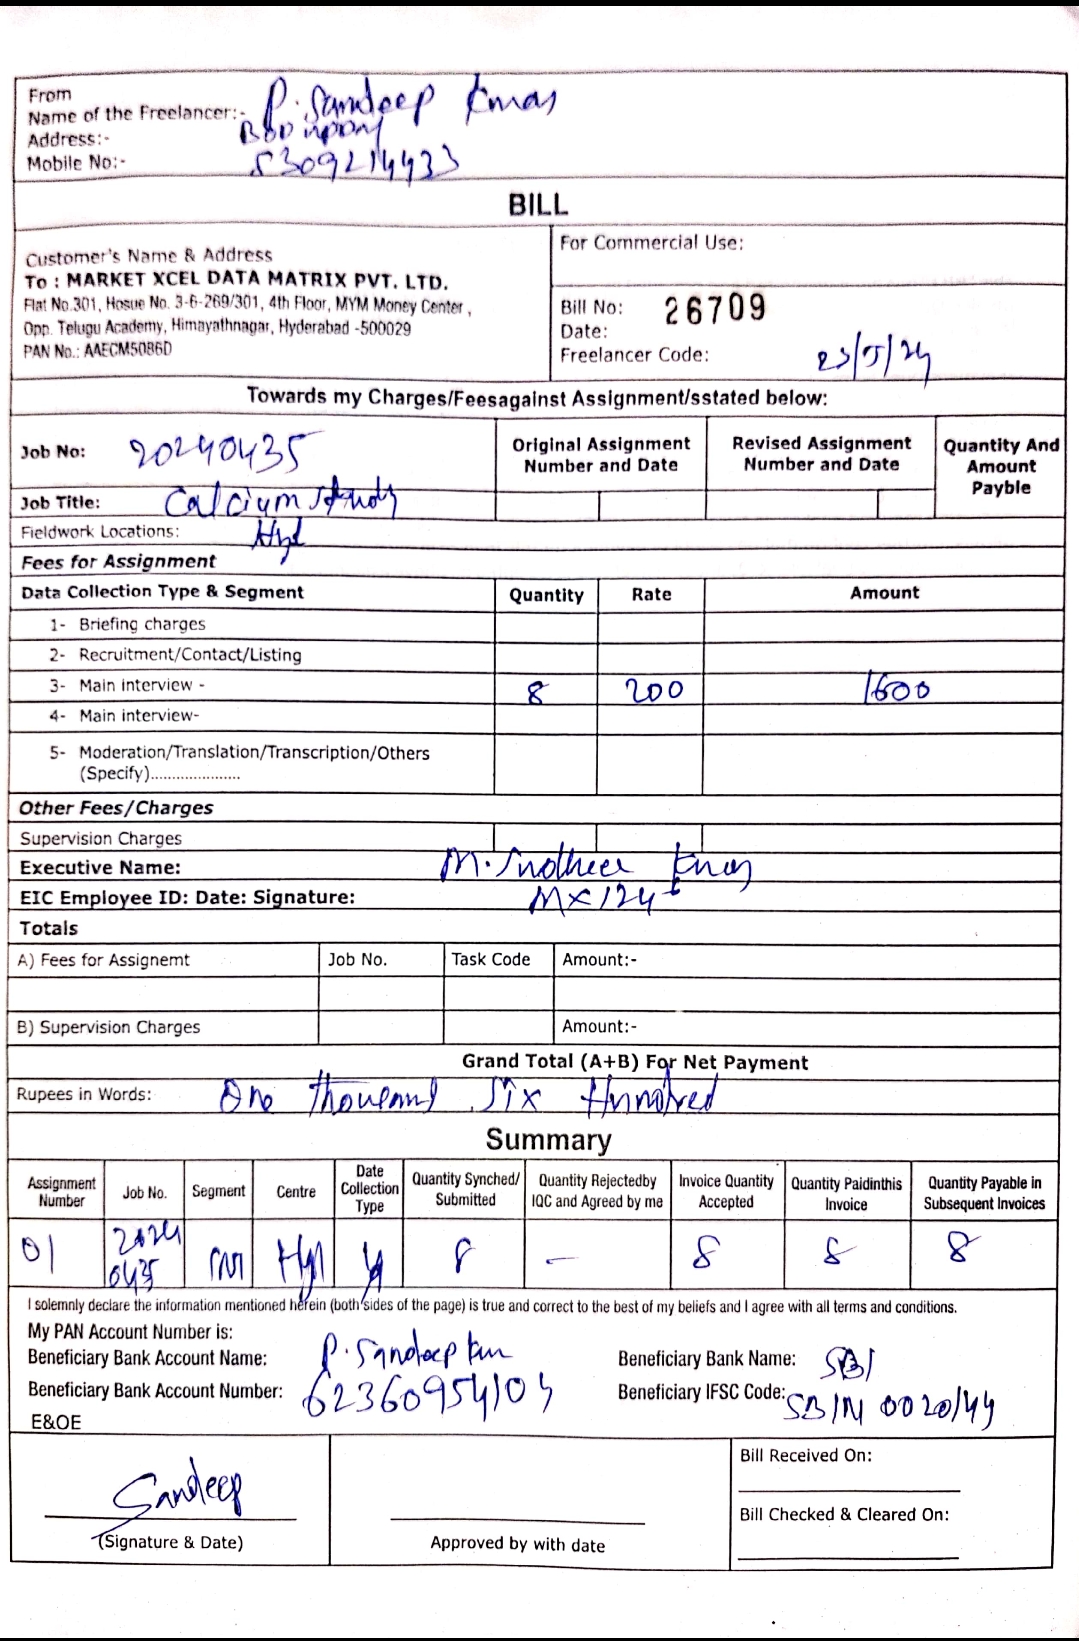 From
Name of the Freelancer:- P. Sandeep Kmar
Address:-
Mobile No:- 8309214433
BILL
Customer's Name & Address
To : MARKET XCEL DATA MATRIX PVT. LTD.
Flat No.301, Hosue No. 3-6-269/301, 4th Floor, MYM Money Center ,
Opp. Telugu Academy, Himayathnagar, Hyderabad -500029
PAN No.: AAECM5086D
For Commercial Use:
Bill No: 26709
Date: 23/5/24
Freelancer Code:
Towards my Charges/Feesagainst Assignment/sstated below:
Job No: 20240435
Original Assignment Number and Date
Revised Assignment Number and Date
Quantity And Amount Payble
Job Title: Calcium study
Fieldwork Locations: Hyd
Fees for Assignment
Data Collection Type & Segment Quantity Rate Amount
1- Briefing charges
2- Recruitment/Contact/Listing
3- Main interview - 8 200 1600
4- Main interview-
5- Moderation/Translation/Transcription/Others
(Specify).....................
Other Fees/Charges
Supervision Charges
Executive Name: M.
EIC Employee ID: Date: Signature: MX124
Totals
A) Fees for Assignemt Job No. Task Code Amount:-
B) Supervision Charges Amount:-
Grand Total (A+B) For Net Payment
Rupees in Words: One Thousand Six Hundred
Summary
Assignment Number
Job No.
Segment
Centre
Date Collection Type
Quantity Synched/ Submitted
Quantity Rejectedby IQC and Agreed by me
Invoice Quantity Accepted
Quantity Paidinthis Invoice
Quantity Payable in Subsequent Invoices
01 20240435 Hyd 8 - 8 8 8
I solemnly declare the information mentioned herein (both sides of the page) is true and correct to the best of my beliefs and I agree with all terms and conditions.
My PAN Account Number is:
Beneficiary Bank Account Name: P. Sandeep Beneficiary Bank Name: SBI
Beneficiary Bank Account Number: Beneficiary IFSC Code: SBIN 0020144
E&OE
Sandeep
(Signature & Date)
Approved by with date
Bill Received On:
Bill Checked & Cleared On: